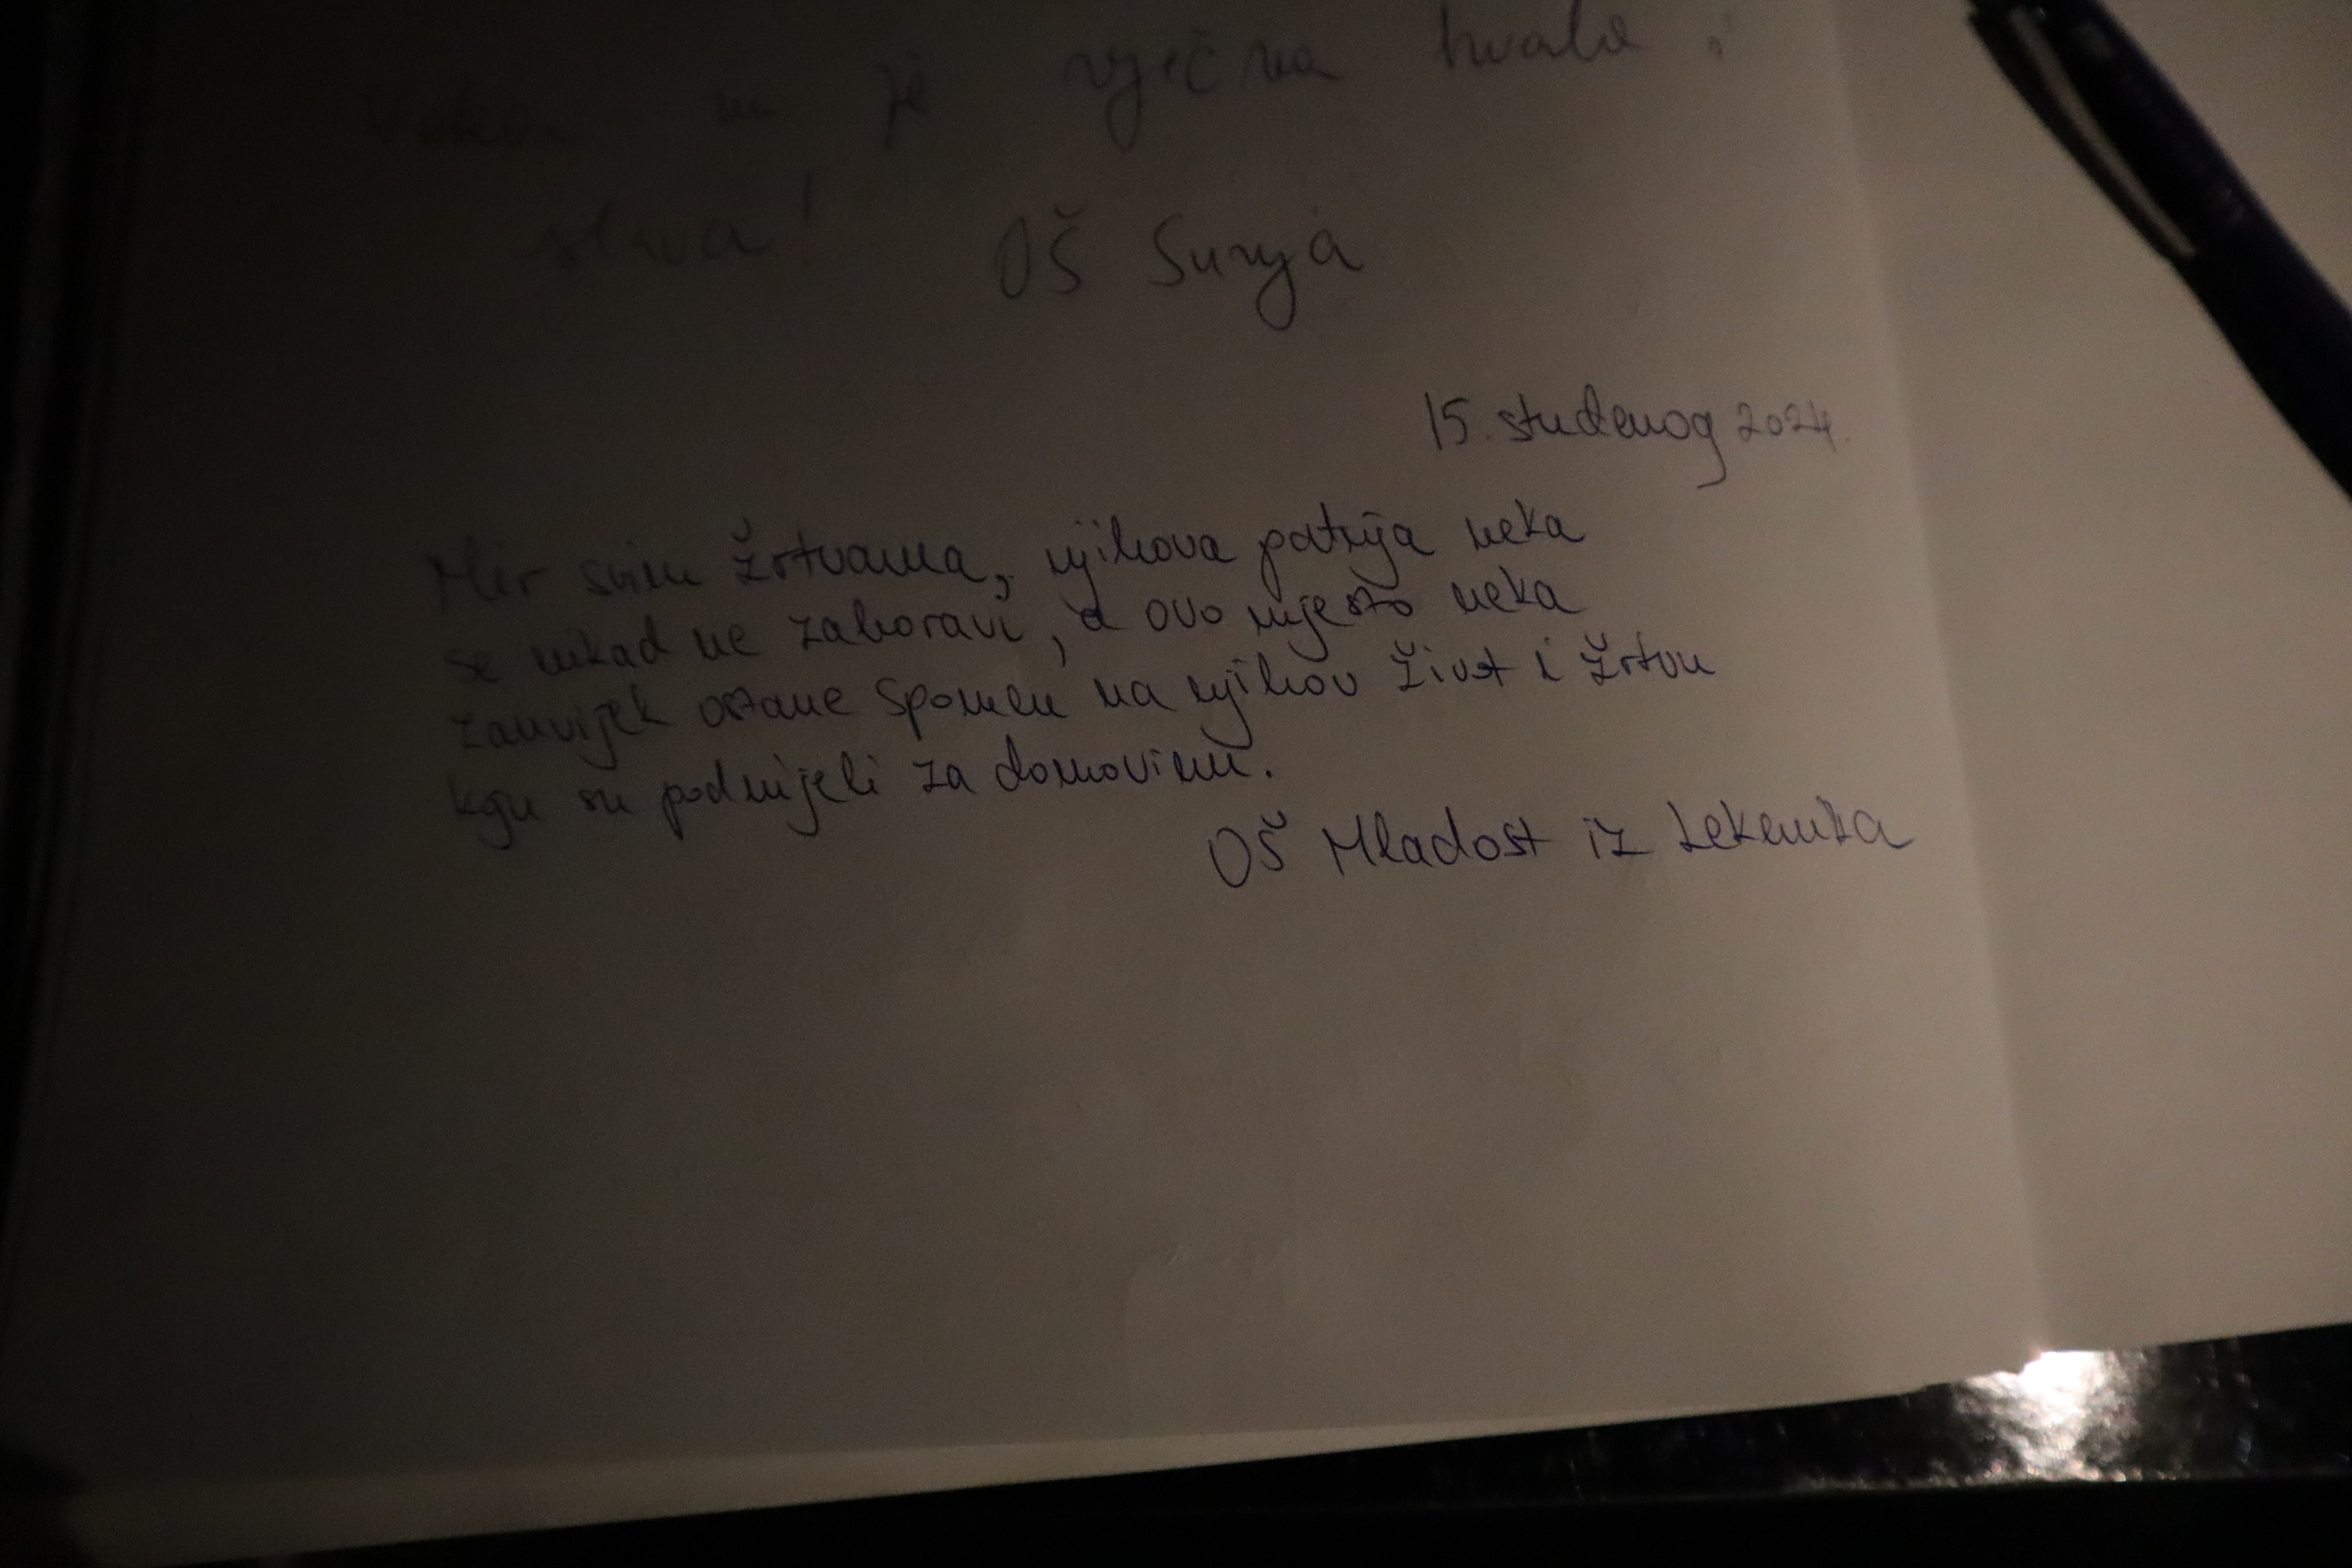 Neka im je vječna hvala i
slava!
OŠ Sunja
15. studenog 2024.
Mir svim žrtvama, njihova patnja neka
se nikad ne zaboravi, a ovo mjesto neka
zauvijek ostane spomen na njihov život i žrtvu
koju su podnijeli za domovinu.
OŠ Mladost iz Lekenika